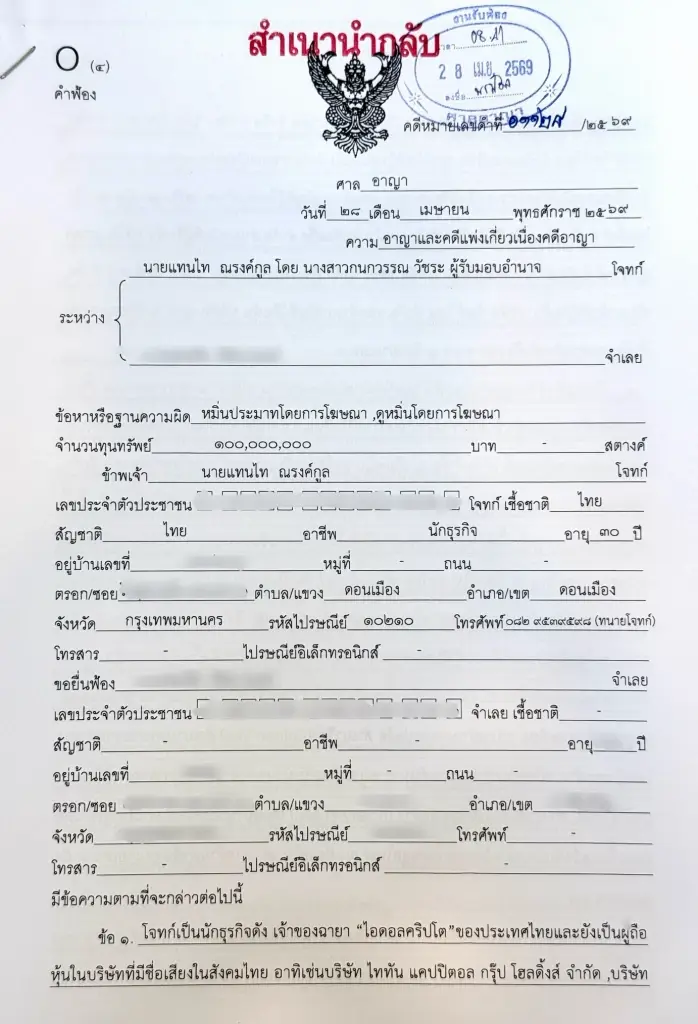 สำเนานำกลับ
งานรับฟ้อง
28 เม.ย. 2569
O (๔)
คำฟ้อง
คดีหมายเลขดำที่ /๒๕๖๙
ศาล อาญา
วันที่ ๒๘ เดือน เมษายน พุทธศักราช ๒๕๖๙
ความ อาญาและคดีแพ่งเกี่ยวเนื่องคดีอาญา
นายแทนไท ณรงค์กูล โดย นางสาวกนกวรรณ วัชระ ผู้รับมอบอำนาจ โจทก์
ระหว่าง
จำเลย
ข้อหาหรือฐานความผิด หมิ่นประมาทโดยการโฆษณา ,ดูหมิ่นโดยการโฆษณา
จำนวนทุนทรัพย์ ๑๐๐,๐๐๐,๐๐๐ บาท - สตางค์
ข้าพเจ้า นายแทนไท ณรงค์กูล โจทก์
เลขประจำตัวประชาชน โจทก์ เชื้อชาติ ไทย
สัญชาติ ไทย อาชีพ นักธุรกิจ อายุ ๓๐ ปี
อยู่บ้านเลขที่ หมู่ที่ - ถนน -
ตรอก/ซอย ตำบล/แขวง ดอนเมือง อำเภอ/เขต ดอนเมือง
จังหวัด กรุงเทพมหานคร รหัสไปรษณีย์ ๑๐๒๑๐ โทรศัพท์ ๐๘๒ ๙๕๓๙๕๙๘ (ทนายโจทก์)
โทรสาร - ไปรษณีย์อิเล็กทรอนิกส์ -
ขอยื่นฟ้อง จำเลย
เลขประจำตัวประชาชน จำเลย เชื้อชาติ -
สัญชาติ - อาชีพ - อายุ ปี
อยู่บ้านเลขที่ หมู่ที่ - ถนน -
ตรอก/ซอย ตำบล/แขวง อำเภอ/เขต
จังหวัด รหัสไปรษณีย์ โทรศัพท์ -
โทรสาร - ไปรษณีย์อิเล็กทรอนิกส์ -
มีข้อความตามที่จะกล่าวต่อไปนี้
ข้อ ๑. โจทก์เป็นนักธุรกิจดัง เจ้าของฉายา “ไอดอลคริปโต”ของประเทศไทยและยังเป็นผู้ถือ
หุ้นในบริษัทที่มีชื่อเสียงในสังคมไทย อาทิเช่นบริษัท ไททัน แคปปิตอล กรุ๊ป โฮลดิ้งส์ จำกัด ,บริษัท